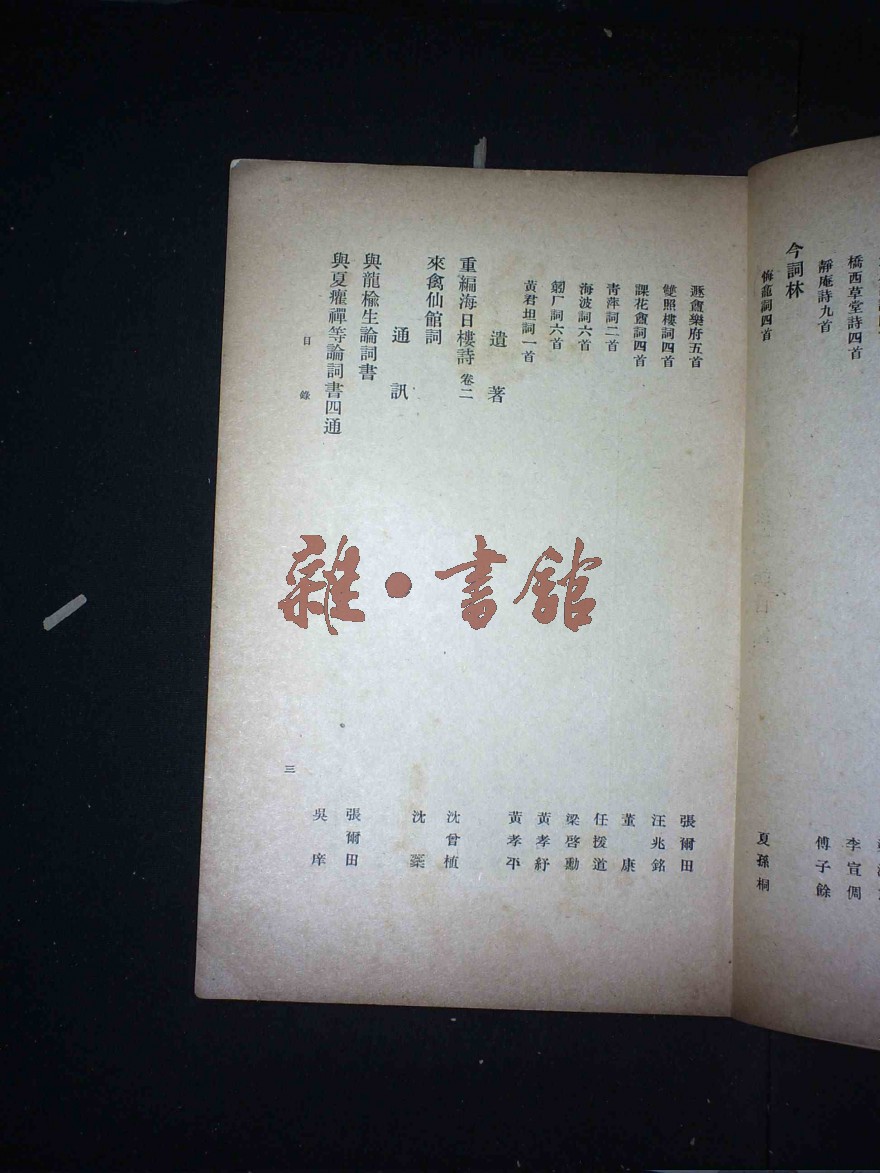 橋西草堂詩四首 李宣倜
靜庵詩九首 傅子餘
今詞林
悔龕詞四首 夏孫桐
遯盦樂府五首 張爾田
雙照樓詞四首 汪兆銘
課花盦詞四首 董康
青萍詞二首 任援道
海波詞六首 梁啓勳
匑厂詞六首 黃孝紓
黃君坦詞一首 黃孝平
遺著
重編海日樓詩 卷二 沈曾植
來禽仙館詞 沈蘂
通訊
與龍楡生論詞書 張爾田
與夏癯禪等論詞書四通 吳庠
目錄
三
雜·書館